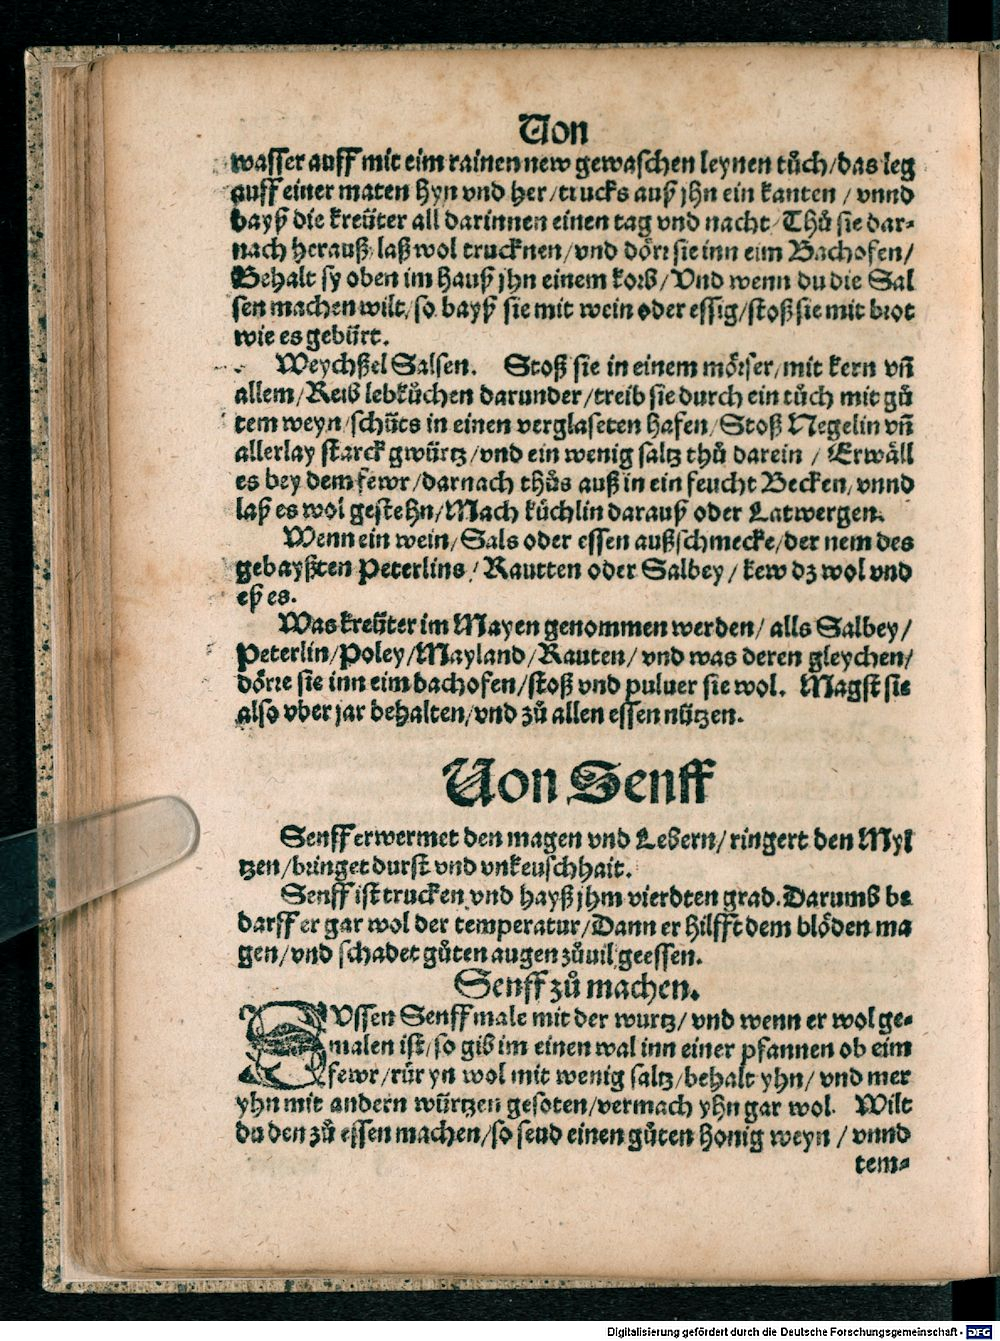 Von
wasser auff mit eim rainen new gewaschen leynen tůch/das leg
auff einer maten hyn vnd her/trucks auß jhn ein kanten / vnnd
bayß die kreüter all darinnen einen tag vnd nacht/Thů sie dar⸗
nach herauß/laß wol trucknen/vnd dörr sie inn eim Bachofen/
Behalt sy oben im hauß jhn einem korb/Vnd wenn du die Sal
sen machen wilt/so bayß sie mit wein oder essig/stoß sie mit brot
wie es gebürt.
Weychßel Salsen. Stoß sie in einem mörser/mit kern vñ
allem/Reib lebkůchen darunder/treib sie durch ein tůch mit gů
tem weyn/schüts in einen verglaseten hafen/Stoß Negelin vñ
allerlay starck gwürtz/vnd ein wenig saltz thů darein / Erwäll
es bey dem fewr/darnach thůs auß in ein feucht Becken/vnnd
laß es wol gestehn/Mach küchlin darauß oder Latwergen.
Wenn ein wein/Sals oder essen außschmecke/der nem des
gebayßten Peterlins/Rautten oder Salbey/kew dz wol vnd
eß es.
Was kreüter im Mayen genommen werden/ alls Salbey/
Peterlin/Poley/Mayland/Rauten/ vnd was deren gleychen/
dörre sie inn eim bachofen/stoß vnd puluer sie wol. Magst sie
also vber jar behalten/vnd zů allen essen nützen.
Von Senff
Senff erwermet den magen vnd Lebern/ringert den Myl
tzen/bringet durst vnd vnkeuschhait.
Senff ist trucken vnd hayß jhm vierdten grad. Darumb be
darff er gar wol der temperatur/Dann er hilfft dem blöden ma
gen/vnd schadet gůten augen zůuil geessen.
Senff zů machen.
SVssen Senff male mit der wurtz/ vnd wenn er wol ge⸗
malen ist/so gib im einen wal inn einer pfannen ob eim
fewr/rür yn wol mit wenig saltz/behalt yhn/ vnd mer
yhn mit andern würtzen gesoten/vermach yhn gar wol. Wilt
du den zů essen machen/so seud einen gůten honig weyn / vnnd
tem⸗
Digitalisierung gefördert durch die Deutsche Forschungsgemeinschaft - DFG